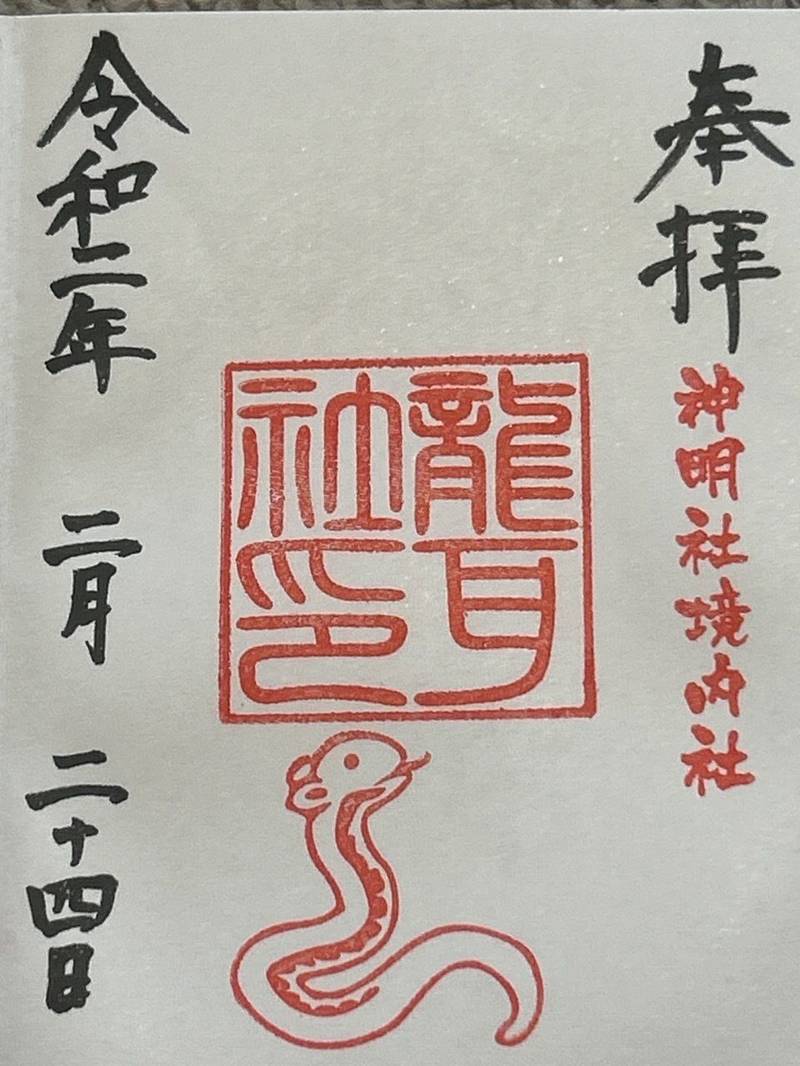 奉拝
神明社境内社
龍耳
社印
令和二年 二月 二十四日